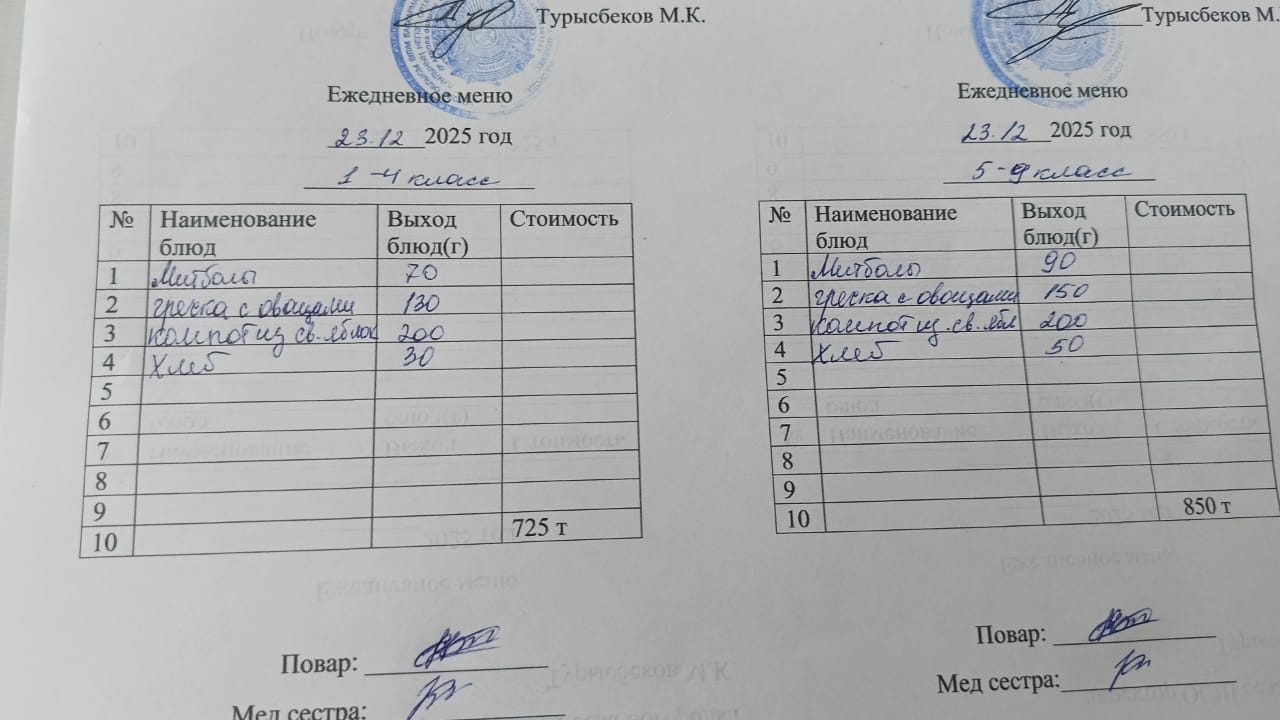 Турысбеков М.К.
Ежедневное меню
23.12 2025 год
1-4 класс
№ Наименование блюд Выход блюд(г) Стоимость
1 Митболы 70
2 гречка с овощами 130
3 компот из св. яблок 200
4 Хлеб 30
5
6
7
8
9
10 725 т
Повар:
Мед сестра:
Турысбеков М.
Ежедневное меню
23.12 2025 год
5-9 класс
№ Наименование блюд Выход блюд(г) Стоимость
1 Митболы 90
2 гречка с овощами 150
3 компот из св. ябл 200
4 Хлеб 50
5
6
7
8
9
10 850 т
Повар:
Мед сестра: